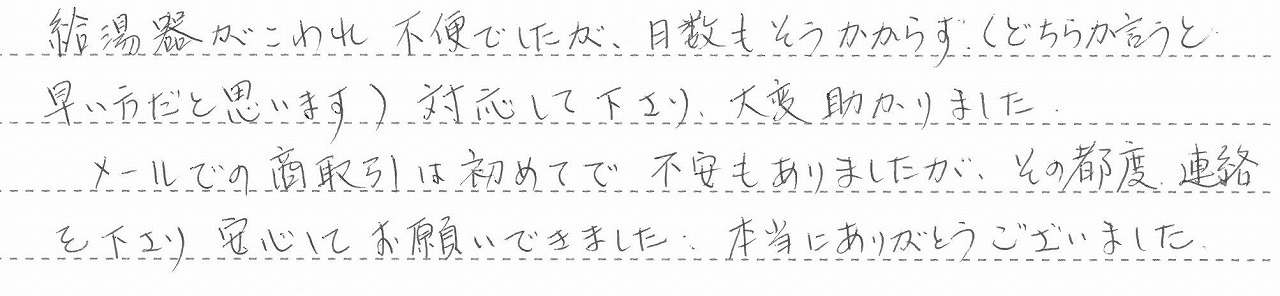 給湯器がこわれ 不便でしたが、日数もそうかからず、(どちらか言うと
早い方だと思います) 対応して下さり、大変助かりました.
メールでの商取引は初めてで 不安もありましたが、その都度、連絡
を下さり 安心してお願いできました. 本当にありがとうございました.